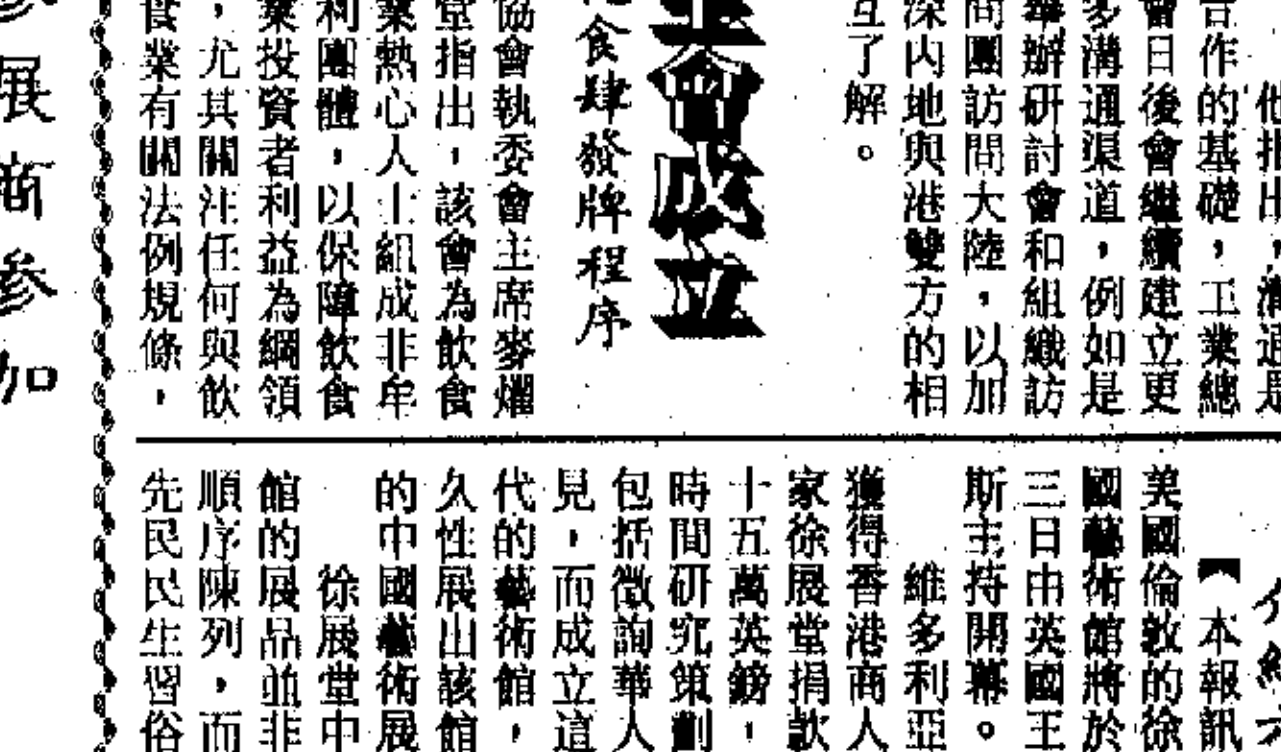 他指出，溝通是
合作的基礎，工業總
會日後會繼續建立更
多溝通渠道，例如是
舉辦研討會和組織訪
問團訪問大陸，以加
深內地與港雙方的相
互了解。
會成立
食肆發牌程序
協會執委會主席麥燿
堂指出，該會為飲食
業熱心人士組成非牟
利團體，以保障飲食
業投資者利益為綱領
，尤其關注任何與飲
食業有關法例規條，
展商參加
【本報訊
美國倫敦的徐
國藝術館將於
三日由英國王
斯主持開幕。
維多利亞
獲得香港商人
家徐展堂捐款
十五萬英鎊，
時間研究策劃
包括徵詢華人
見，而成立這
代的藝術館，
久性展出該館
的中國藝術展
徐展堂中
館的展品並非
順序陳列，而
先民民生習俗